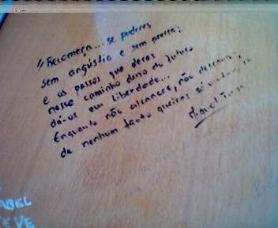 "Recomeça... se puderes,
sem angústia e sem pressa;
e os passos que deres
nesse caminho duro do futuro
dá-os em liberdade...
Enquanto não alcances, não descanses,
de nenhum fruto queiras só metade."
Miguel Torga
ABEL
TEVE